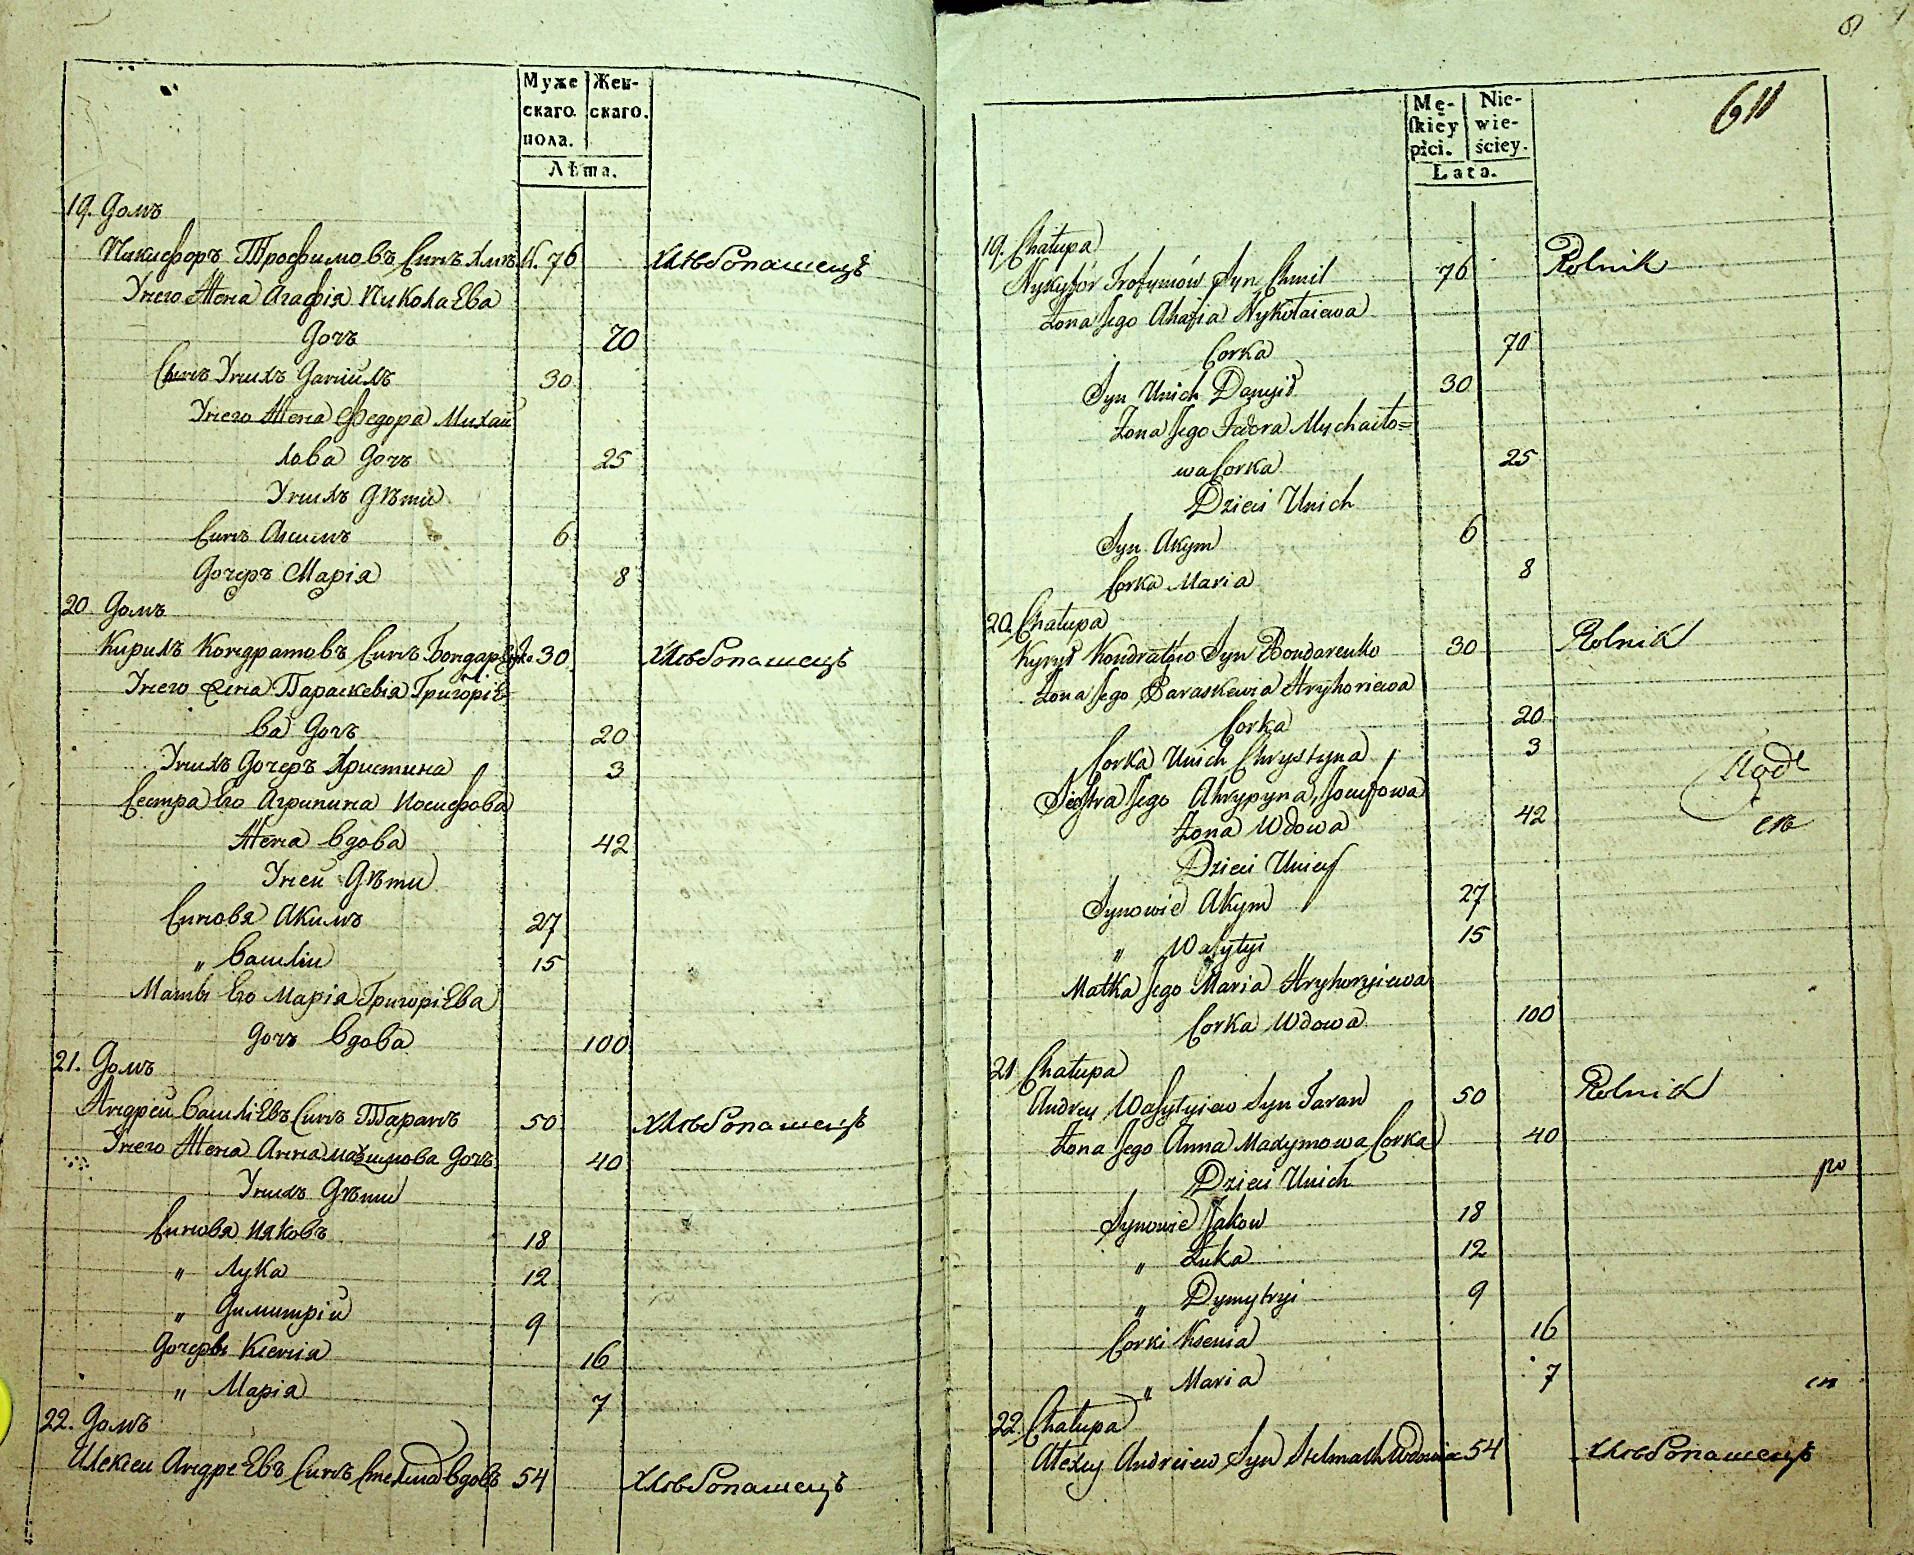 Муже
скаго
пола.
Жен-
скаго.
Лѣта.
19. Домъ
Никифоръ Трофимовъ Синъ Хмѣл. 76 Хлѣбопашецъ
Унего Жена Агафія Николаева
Дочъ 70
Синъ Унихъ Даніилъ 30
Унего Жена Федора Михай
лова Дочъ 25
Унихъ Дѣти
Синъ Акимъ 6
Дочеръ Марія 8
20 Домъ
Кирилъ Кондратовъ Синъ Бондаренко 30 Хлѣбопашецъ
Унего Жена Параскевія Григоріе
ва Дочъ 20
Унихъ Дочеръ Христина 3
Сестра Его Агрипина Иосифова
Жена Вдова 42
Уней Дѣти
Синовя Акимъ 27
„ Василіи 15
Мать Его Марія Григоріева
дочъ Вдова 100
21. Домъ
Андрей Василіевъ Синъ Таранъ 50 Хлѣбопашецъ
Унего Жена Анна Мазимова Дочъ 40
Унихъ Дѣти
Синовя Иаковъ 18
„ Лука 12
„ Димитрій 9
Дочеры Ксенія 16
„ Марія 7
22. Домъ
Алексій Андреевъ Синъ Стелмах вдовъ 54 Хлѣбопашецъ
611
Mę-
ſkiey
płci.
Nie-
wie-
ściey.
Lata.
19. Chałupa
Nykyfor Trofymów Syn Chmil 76 Rolnik
Żona Jego Ahafia Nykołaiewa
Corka 70
Syn Unich Danyił 30
Żona Jego Fedora Mychaiło=
wa Corka 25
Dzieci Unich
Syn Akym 6
Corka Maria 8
20. Chałupa
Kyrył Kondratów Syn Bondarenko 30 Rolnik
Żona Jego Paraskewia Hryhoriewa
Corka 20
Corka Unich Chrystyna 3
Siostra Jego Ahrypyna Josyfowa
Żona Wdowa 42
Dzieci Uniey
Synowie Akym 27
„ Wasylyi 15
Matka Jego Maria Hryhoryiewa
Corka Wdowa 100
21 Chałupa
Andrey Wasylyiew Syn Taran 50 Rolnik
Żona Jego Anna Maxymowa Corka 40
Dzieci Unich
Synowie Jakow 18
„ Łuka 12
„ Dymytryi 9
Corki Ksenia 16
„ Maria 7
22 Chałupa
Alexy Andreiew Syn Stelmach Wdowiec 54 Хлѣбопашецъ